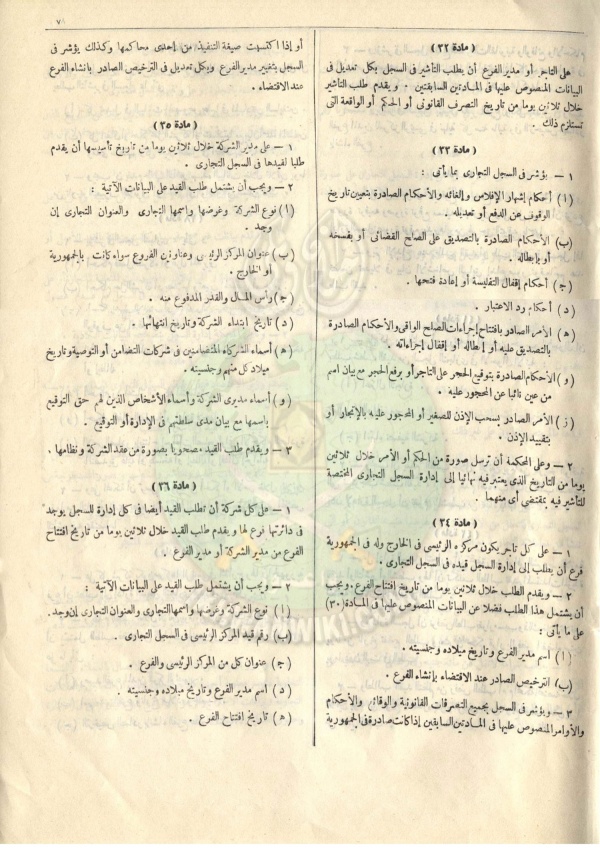 ٧١
( مادة ٣٢ )
على التاجر أو مدير الفرع أن يطلب التأشير فى السجل بكل تعديل فى
البيانات المنصوص عليها فى المادتين السابقتين . ويقدم طلب التأشير
خلال ثلاثين يوما من تاريخ التصرف القانونى أو الحكم أو الواقعة التى
تستلزم ذلك .
( مادة ٣٣ )
١ — يؤشر فى السجل التجارى بما يأتى :
( ا ) أحكام إشهار الإفلاس وإلغائه والأحكام الصادرة بتعيين تاريخ
الوقوف عن الدفع أو تعديله .
(ب) الأحكام الصادرة بالتصديق على الصلح القضائى أو بفسخه
أو بإبطاله .
(ج) أحكام إقفال التفليسة أو إعادة فتحها .
( د ) أحكام رد الاعتبار .
( ه ) الأمر الصادر بافتتاح إجراءات الصلح الواقى والأحكام الصادرة
بالتصديق عليه أو إبطاله أو إقفال إجراءاته .
( و ) الأحكام الصادرة بتوقيع الحجر على التاجر أو برفع الحجر مع بيان اسم
من عين نائبا عن المحجور عليه .
( ز ) الأمر الصادر بسحب الإذن للصغير أو المحجور عليه بالإتجار أو
بتقييد الإذن .
٢ — وعلى المحكمة أن ترسل صورة من الحكم أو الأمر خلال ثلاثين
يوما من التاريخ الذى يعتبر فيه نهائيا إلى إدارة السجل التجارى المختصة
للتأشير فيه بمقتضى أى منهما .
( مادة ٣٤ )
١ — على كل تاجر يكون مركزه الرئيسى فى الخارج وله فى الجمهورية
فرع أن يطلب إلى إدارة السجل قيده فى السجل التجارى .
٢ — ويقدم الطلب خلال ثلاثين يوما من تاريخ افتتاح الفرع . ويجب
أن يشتمل هذا الطلب فضلا عن البيانات المنصوص عليها فى المادة (٣٠)
على ما يأتى :
( ا ) اسم مدير الفرع وتاريخ ميلاده وجنسيته .
(ب) الترخيص الصادر عند الاقتضاء بإنشاء الفرع .
٣ — ويؤشر فى السجل بجميع التصرفات القانونية والوقائع والأحكام
والأوامر المنصوص عليها فى المادتين السابقتين إذا كانت صادرة فى الجمهورية
أو إذا اكتسبت صيغة التنفيذ من إحدى محاكمها وكذلك يؤشر فى
السجل بتغيير مدير الفرع وبكل تعديل فى الترخيص الصادر بانشاء الفرع
عند الاقتضاء .
( مادة ٣٥ )
١ — على مدير الشركة خلال ثلاثين يوما من تاريخ تأسيسها أن يقدم
طلبا لقيدها فى السجل التجارى .
٢ — ويجب أن يشتمل طلب القيد على البيانات الآتية :
( ا ) نوع الشركة وغرضها واسمها التجارى والعنوان التجارى إن
وجد .
(ب) عنوان المركز الرئيسى وعناوين الفروع سواء كانت بالجمهورية
أو الخارج .
(ج) رأس المال والقدر المدفوع منه .
( د ) تاريخ ابتداء الشركة وتاريخ انتهائها .
( ه ) أسماء الشركاء المتضامنين فى شركات التضامن أو التوصية وتاريخ
ميلاد كل منهم وجنسيته .
( و ) أسماء مديرى الشركة وأسماء الأشخاص الذين لهم حق التوقيع
باسمها مع بيان مدى سلطتهم فى الإدارة أو التوقيع .
٣ — ويقدم طلب القيد مصحوبا بصورة من عقد الشركة ونظامها .
( مادة ٣٦ )
١ — على كل شركة أن تطلب القيد أيضا فى كل إدارة للسجل يوجد
فى دائرتها فرع لها ويقدم طلب القيد خلال ثلاثين يوما من تاريخ افتتاح
الفرع من مدير الشركة أو مدير الفرع .
٢ — ويجب أن يشتمل طلب القيد على البيانات الآتية :
( ا ) نوع الشركة وغرضها واسمها التجارى والعنوان التجارى إن وجد .
(ب) رقم قيد المركز الرئيسى فى السجل التجارى .
(ج) عنوان كل من المركز الرئيسى والفرع .
( د ) اسم مدير الفرع وتاريخ ميلاده وجنسيته .
( ه ) تاريخ افتتاح الفرع .